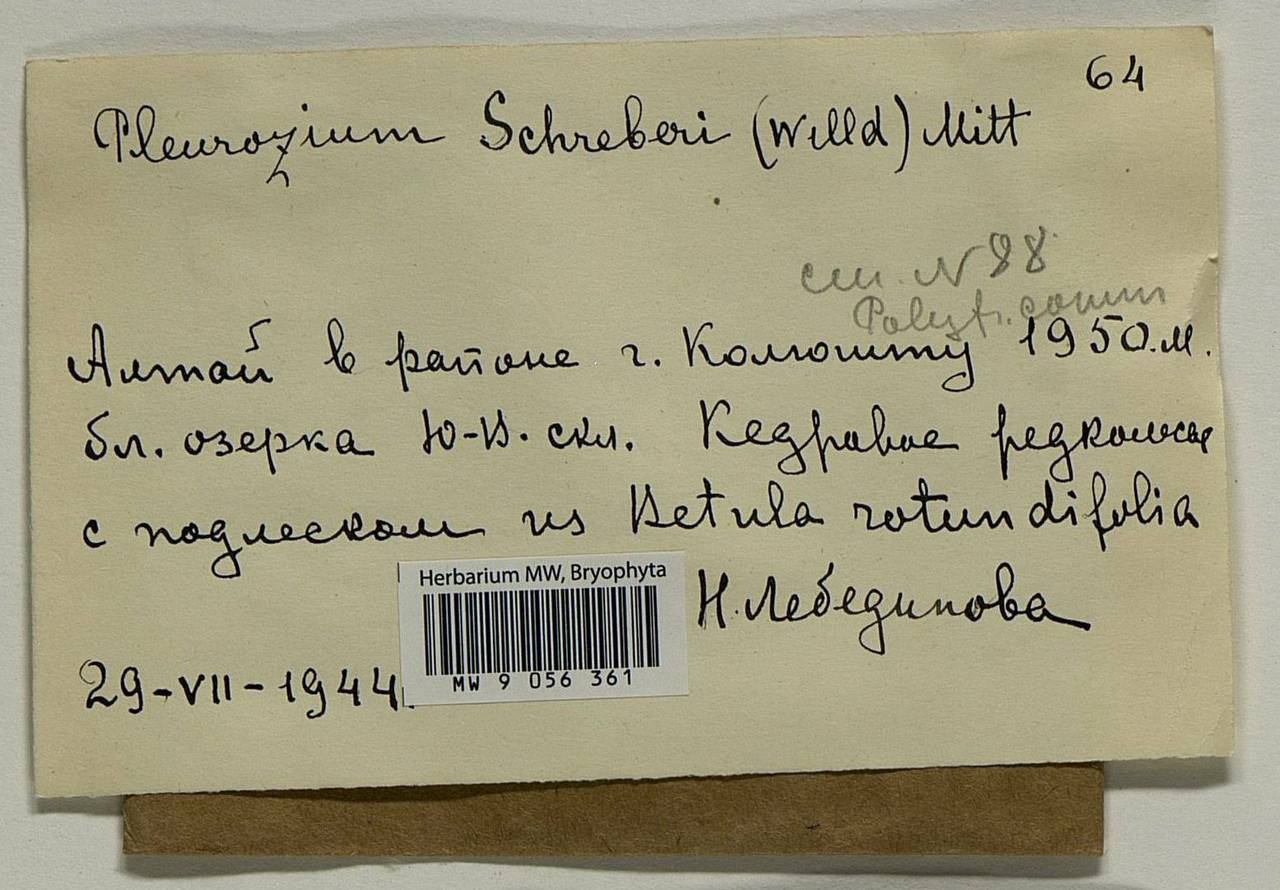 64
Pleurozium Schreberi (Willd) Mitt
см. N 88
Polytr. comm
Алтай в районе г. Колюшту 1950.м.
бл. озерка Ю-В. скл. Кедровое редколесье
с подлеском из Betula rotundifolia
Н. Лебединова
Herbarium MW, Bryophyta
MW 9 056 361
29-VII-1944